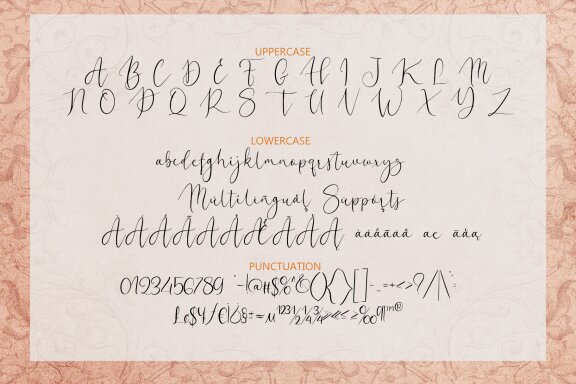 UPPERCASE
A B C D E F G H I J K L M
N O P Q R S T U V W X Y Z
LOWERCASE
abcdefghijklmnopqrstuvwxyz
Multilingual Supports
ÀÁÂÃÄÅÆĀĂĄ àáâãäå æ āăą
PUNCTUATION
0123456789